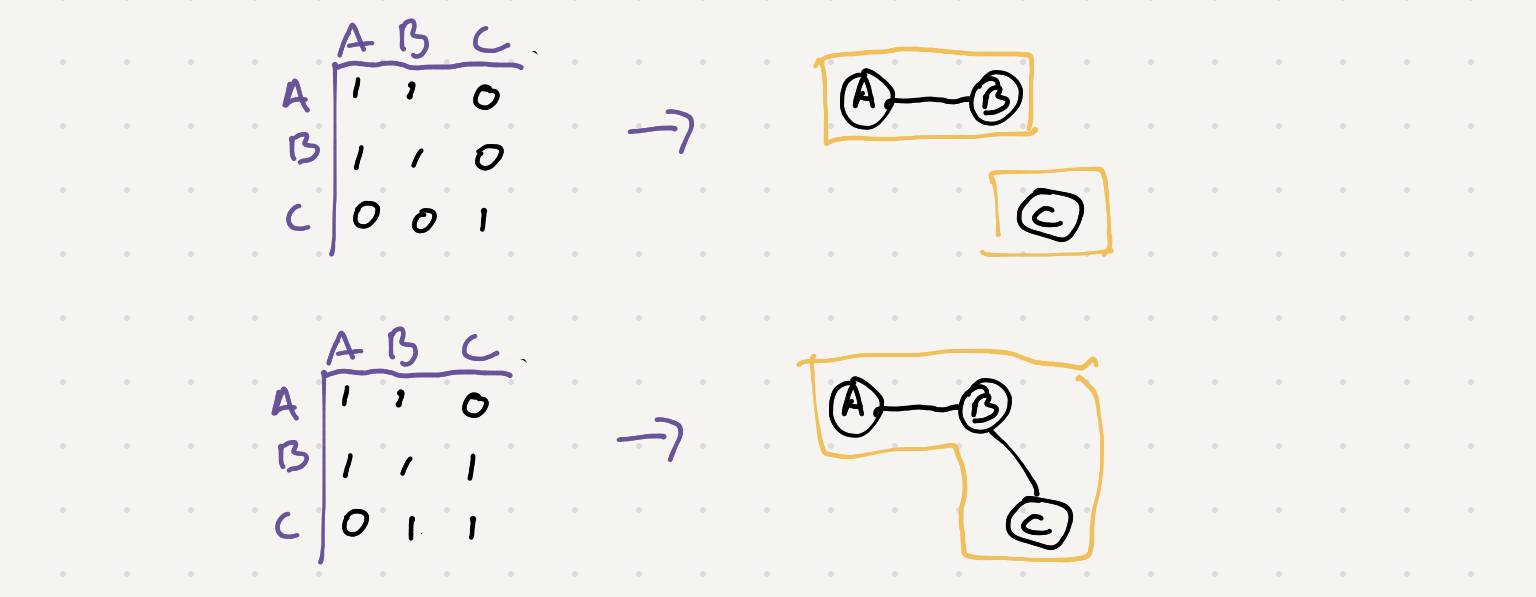 A B C
A 1 1 0
B 1 1 0
C 0 0 1
A B
C
A B C
A 1 1 0
B 1 1 1
C 0 1 1
A B
C